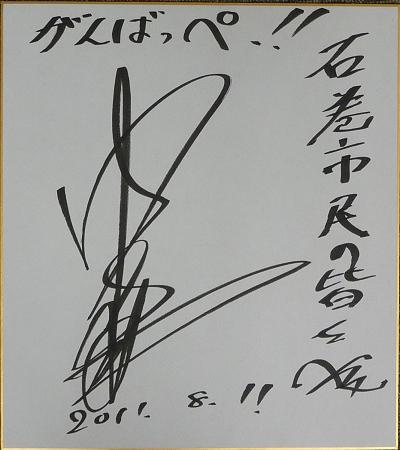 がんばっぺ!!
石巻市民の皆さんへ
2011. 8. 11